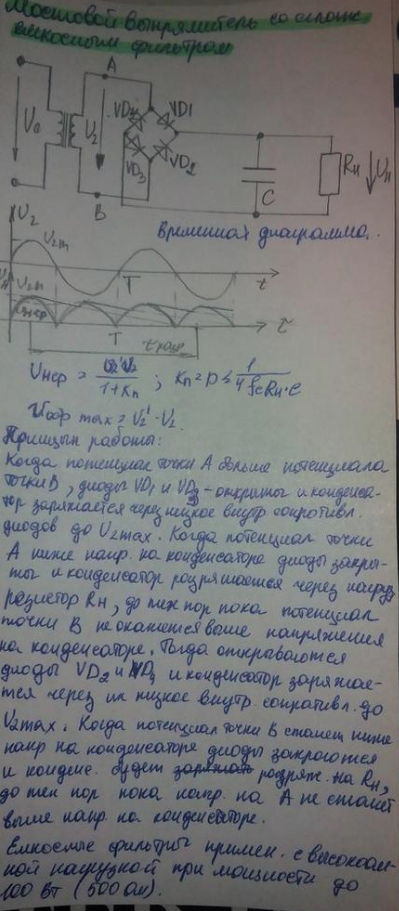 Мостовой выпрямитель со
емкостным фильтром
A
VD1
VD2
VD3
U₂
C
Rн
Uн
B
U₂
Временная диаграмма.
U₂m
T
t
U₂m
T
t разр
Uнср =
1+Kп
; Kп = P ≤ 1
4 fc Rн·C
max = U₂' · U₂
Принцып работы:
Когда потенциал точки А больше потенциала
точки В, диоды VD1 и - открыты и конденса-
тор заряжается через низкое внутр сопротивл.
диодов до U₂max. Когда потенциал точки
А ниже напр. на конденсаторе диоды закры-
ты и конденсатор розряжается через нагруз
резистор Rн, до тех пор пока потенциал
точки В не окажется выше напряжения
на конденсаторе. Тогда открываются
диоды VD2 и VD3 и конденсатор заряжае-
тся через их низкое внутр. сопротивл. до
U₂max. Когда потенциал точки В станет ниже
напр на конденсаторе диоды закроются
и конденс. будет розряж. на Rн,
до тех пор пока напр. на А не станет
выше напр. на конденсаторе.
Емкосные фильтры примен. с высокоом-
ной нагрузкой при мощности до
100 Вт (500 Ом).